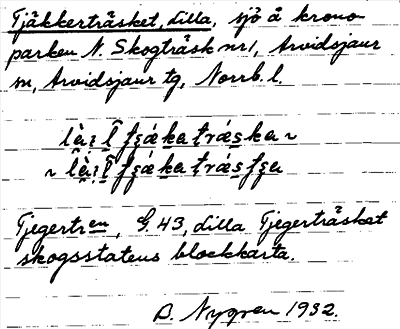 Tjäkkerträsket, Lilla, sjö å krono-
parken N. Skogträsk nr 1, Arvidsjaur
sn, Arvidsjaur tg, Norrb. l.
Tjegertr en, G. 43, Lilla Tjegerträsket
skogsstatens blockkarta.
B. Nygren 1932.